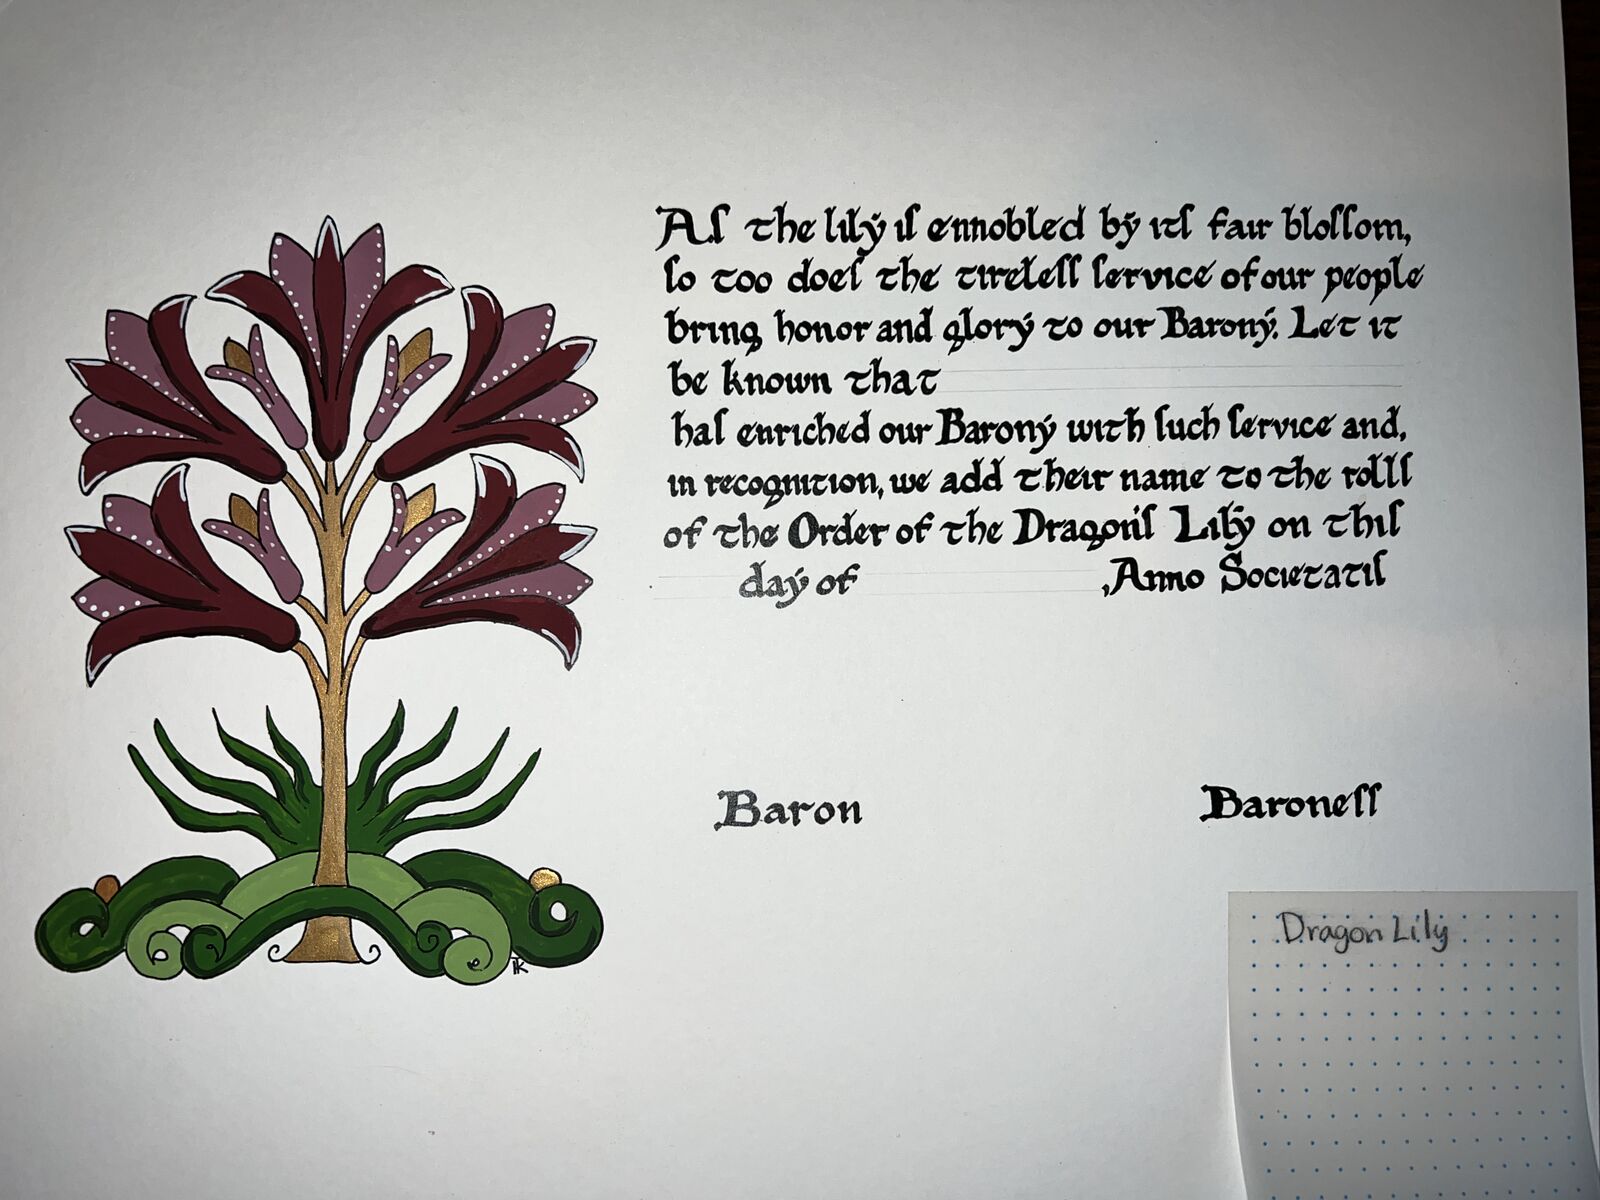 As the lily is ennobled by its fair blossom,
so too does the tireless service of our people
bring honor and glory to our Barony. Let it
be known that
has enriched our Barony with such service and,
in recognition, we add their name to the rolls
of the Order of the Dragon's Lily on this
day of , Anno Societatis
Baron Baroness
Dragon Lily
TK